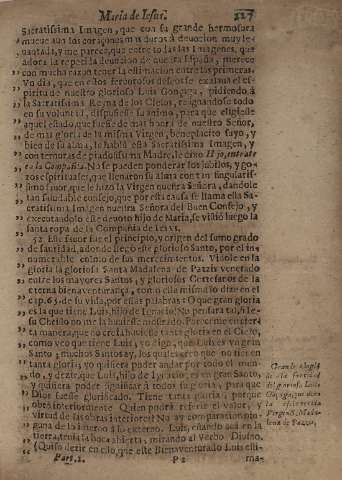 Maria de Iesus. 227
Sacratissima Imagen, que con su grande hermosura
mueve aun los coraçones mas duros à devocion, muy le-
vantada, y me parece, que entre todas las Imagenes, que
adora la repetida devocion de nuestra España, merece
con mucha razon tener la estimacion entre las primeras.
Vn dia, que en estos fervorosos deseos se exalava el es-
piritu de nuestro glorioso Luis Gonçaga, pidiendo à
la Sacratissima Reyna de los Cielos, resignandose todo
en su voluntad, dispusiesse su animo, para que eligiesse
aquel estado, que fuesse de mas honra de nuestro Señor,
de mas gloria de la misma Virgen, beneplacito suyo, y
bien de su alma, le habló esta Sacratissima Imagen, y
con ternuras de piadosissima Madre, le dixo: Hijo, entrate
en la Compañia. No se pueden ponderar los jubilos, y go-
zos espirituales, que llenaron su alma con tan singularis-
simo favor, que le hizo la Virgen nuestra Señora, dandole
tan saludable consejo, que por esta causa se llama esta Sa-
cratissima Imagen nuestra Señora del Buen Consejo, y
executandolo este devoto hijo de Maria, se vistió luego la
santa ropa de la Compañia de Iesus.
52 Este favor fue el principio, y origen del sumo grado
de santidad, adonde llegó este glorioso Santo, por el in-
numerable cumulo de sus merecimientos. Viòle en la
gloria la gloriosa Santa Madalena de Pazzis venerado
entre los mayores Santos, y gloriosos Cortesanos de la
eterna bienaventurança, como ella misma lo dize en el
cap. 63. de su vida, por estas palabras: O que gran gloria
es la que tiene Luis, hijo de Ignacio! No pensara tal, si Ie-
su Christo no me la huviesse mostrado. Pareceme en cier-
ta manera, que no creia huviesse tanta gloria en el Cielo,
como veo que tiene Luis; yo digo, que Luis es vn gran
Santo, muchos Santos ay, los quales creo que no tienen
tanta gloria; yo quisiera poder andar por todo el mun-
do, y dezir, que Luis, hijo de Ignacio, es vn gran Santo,
y quisiera poder significar à todos su gloria, para que
Dios fuesse glorificado. Tiene tanta gloria, porque
obró interiormente. Quien podrà referir el valor, y
virtud de las obras interiores! No ay comparacion nin-
guna de lo interno à lo externo. Luis, estando acà en la
tierra, tenia la boca abierta, mirando al Verbo Divino.
(Quiso dezir en esto, que este Bienaventurado Luis esti-
Part. 2. P 2 ma-
de la santidad
del glorioso Luis
Gonçaga, que dixo
la esclarecida
Virgen S. Mada-
lena de Pazzis.